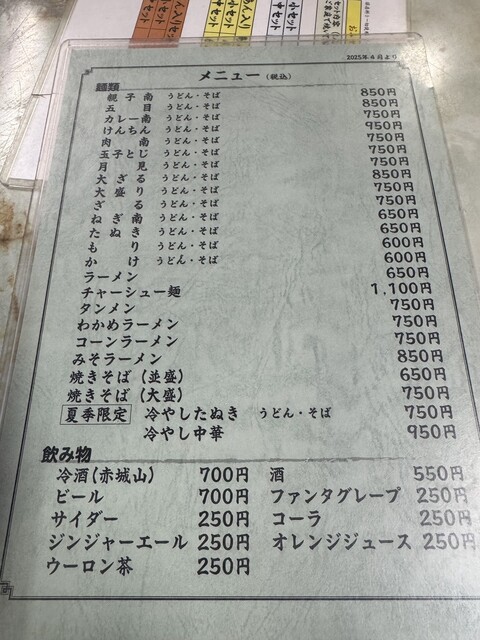 2025年4月より
メニュー(税込)
麺類
親子南 うどん・そば 850円
五目 うどん・そば 850円
カレー南 うどん・そば 750円
けんちん うどん・そば 950円
肉南 うどん・そば 750円
玉子とじ うどん・そば 750円
月見 うどん・そば 750円
大ざる うどん・そば 850円
大盛り うどん・そば 750円
ざる うどん・そば 750円
ねぎ南 うどん・そば 650円
たぬき うどん・そば 650円
もり うどん・そば 600円
かけ うどん・そば 600円
ラーメン 650円
チャーシュー麺 1,100円
タンメン 750円
わかめラーメン 750円
コーンラーメン 750円
みそラーメン 850円
焼きそば(並盛) 650円
焼きそば(大盛) 750円
夏季限定 冷やしたぬき うどん・そば 750円
冷やし中華 950円
飲み物
冷酒(赤城山) 700円 酒 550円
ビール 700円 ファンタグレープ 250円
サイダー 250円 コーラ 250円
ジンジャーエール 250円 オレンジジュース 250円
ウーロン茶 250円